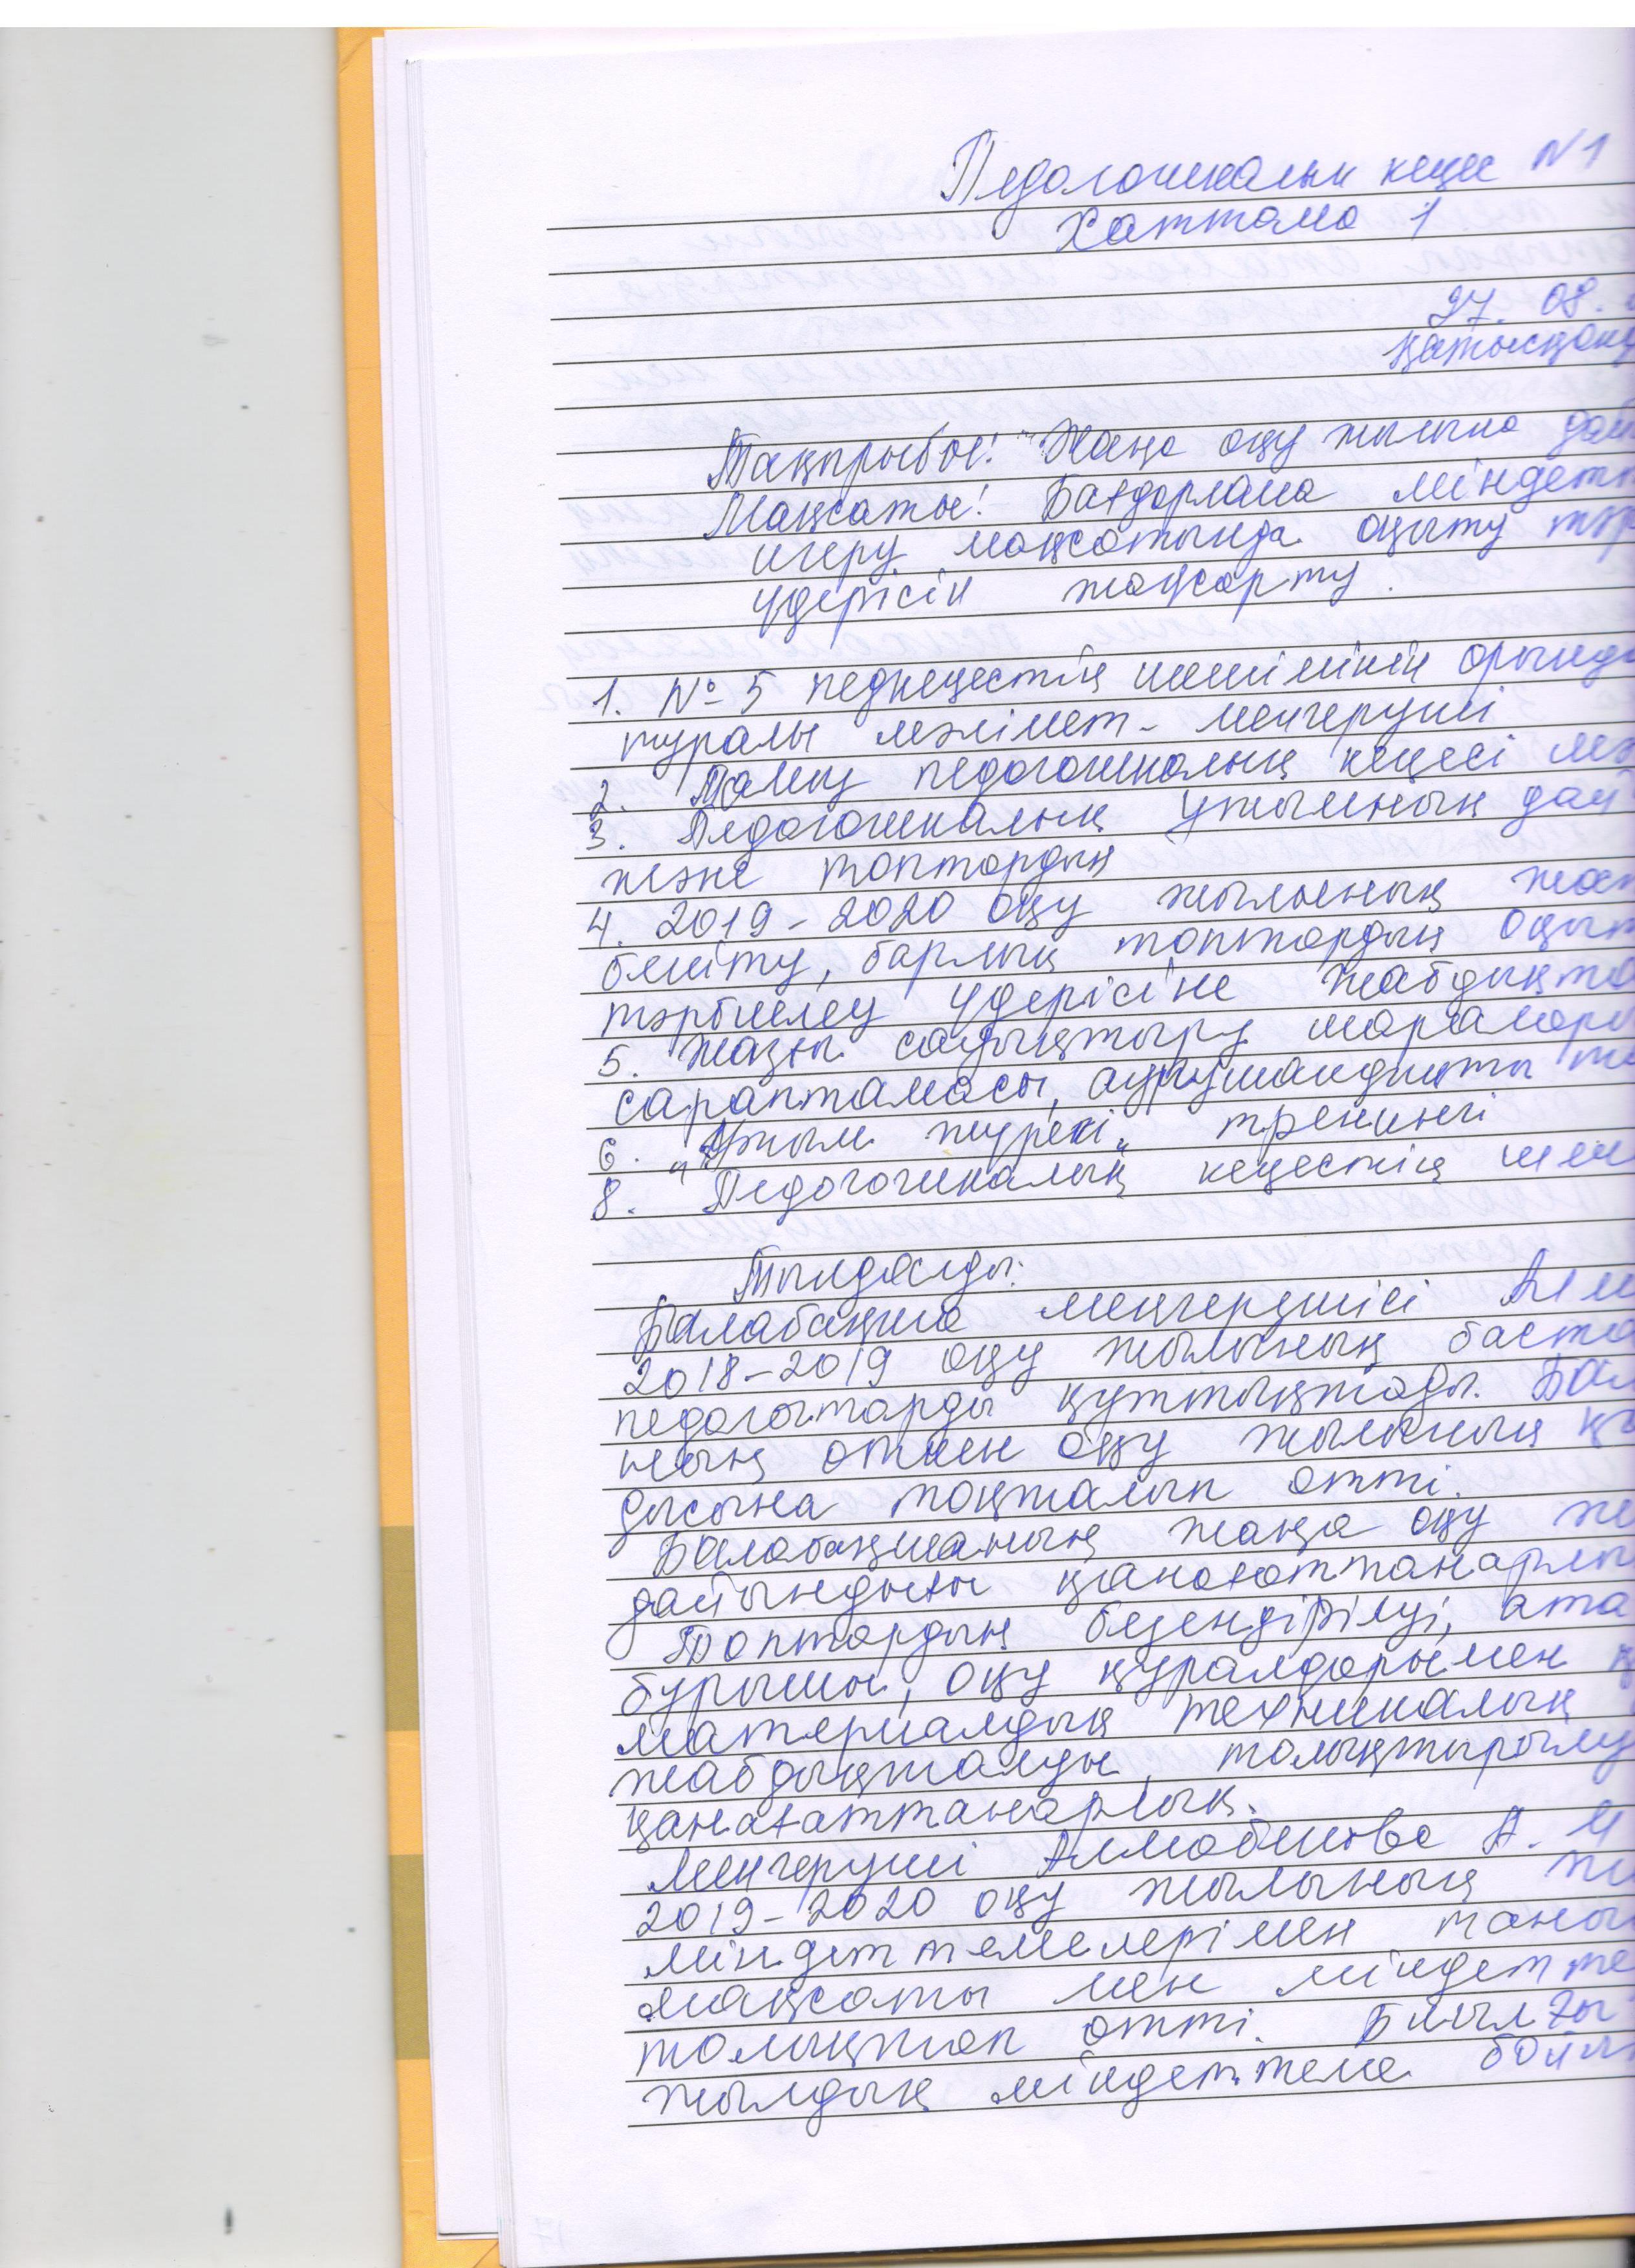 Педагогикалық кеңес №1
Хаттама 1
27. 08.
Қатысқан
Тақырыбы: "Жаңа оқу жылына дай
Мақсаты: Бағдарлама міндетт
игеру мақсатында оқыту тәр
үдерісін жақсарту.
1. №5 педкеңестің шешімінің орында
туралы мәлімет - меңгеруші
2. Тамыз педагогикалық кеңесі мә
3. Педагогикалық ұжымның дай
және топтардың
4. 2019-2020 оқу жылының жос
бекіту, барлық топтардың оқыт
тәрбиелеу үдерісіне жабдықта
5. Жазғы сауықтыру шаралары
сараптамасы, аурушаңдықты т
6. "Ұжым жүрегі" тренингі
8. Педагогикалық кеңестің шеш
Тыңдалды:
Балабақша меңгерушісі Алм
2018-2019 оқу жылының баста
педагогтарды құттықтады. Бал
ның өткен оқу жылының қо
дысына тоқталып өтті.
Балабақшаның жаңа оқу жы
дайындығы қанағаттанарлы
Топтардың безендірілуі, ата
бұрышы, оқу құралдарымен қ
материалдық техникалық
жабдықталуы, толықтырылу
қанағаттанарлық.
Меңгеруші Алмабекова А. Ч
2019-2020 оқу жылының жы
міндеттемелерімен таныс
мақсаты мен міндетте
толықтап өтті. Биылғы
жылдық міндеттеме бойы